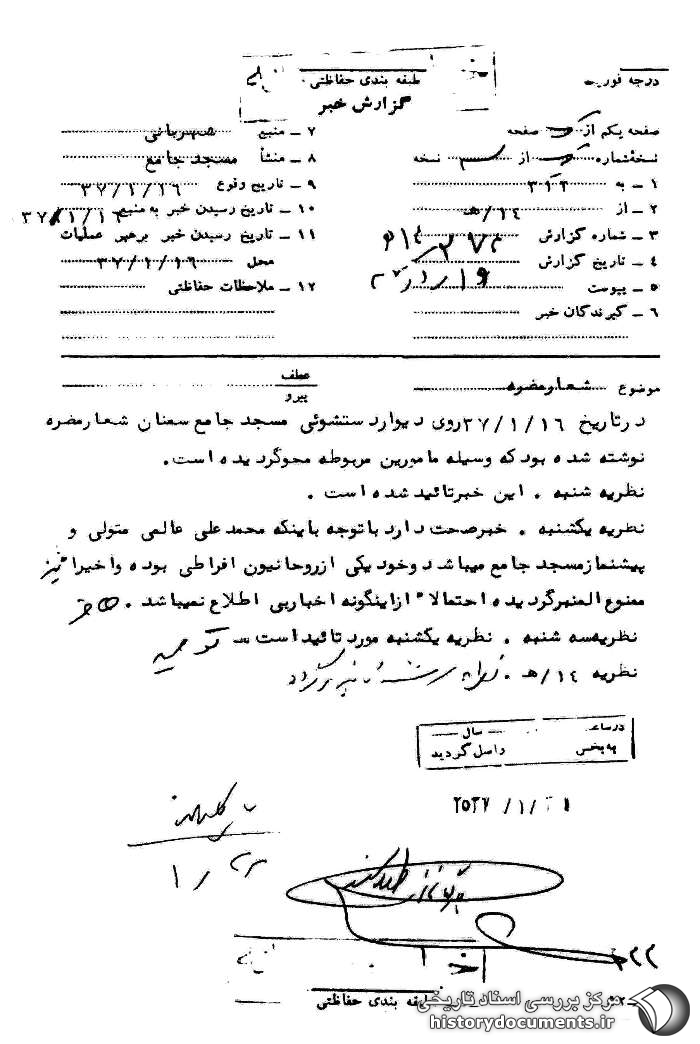 درجه فوریت
طبقه بندی حفاظتی
گزارش خبر
صفحه یکم از صفحه
نسخه شماره از نسخه
۱ ـ به ۳۱۲
۲ ـ از ۱۴/هـ
۳ ـ شماره گزارش
۴ ـ تاریخ گزارش
۵ ـ پیوست
۶ ـ گیرندگان خبر
۷ ـ منبع شهربانی
۸ ـ منشأ مسجد جامع
۹ ـ تاریخ وقوع ۳۷/۱/۱۶
۱۰ ـ تاریخ رسیدن خبر به منبع ۳۷/۱/۱۶
۱۱ ـ تاریخ رسیدن خبر برهبر عملیات
محل ۳۷/۱/۱۶
۱۲ ـ ملاحظات حفاظتی
موضوع شعارمضره
عطف
پیرو
درتاریخ ۳۷/۱/۱۶ روی دیوارد ستشوئی مسجد جامع سمنان شعارمضره
نوشته شده بود که وسیله مامورین مربوطه محوگردیده است.
نظریه شنبه . این خبرتائید شده است .
نظریه یکشنبه . خبرصحت دارد باتوجه باینکه محمدعلی عالمی متولی و
پیشنمازمسجد جامع میباشد وخود یکی ازروحانیون افراطی بوده واخیرا نیز
ممنوع المنبرگردیده احتمالا" ازاینگونه اخباربی اطلاع نمیباشد .
نظریه سه شنبه . نظریه یکشنبه مورد تائید است
نظریه ۱۴/هـ .
درساعت
سال
به بخش
واصل گردید
۲۵۳۷/۱/۲۱
۳۲۲
طبقه بندی حفاظتی
مرکز بررسی اسناد تاریخی
historydocuments.ir